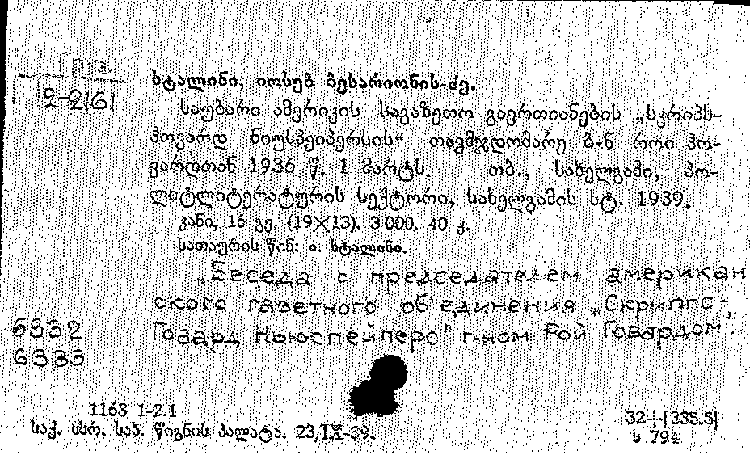 სტალინი, იოსებ ბესარიონის-ძე.
2-2(6)
საუბარი ამერიკის საგაზეთო გაერთიანების „სკრიპს-
ჰოვარდ ნიუსპეიპერსის“ თავმჯდომარე ბ-ნ როი ჰო-
ვარდთან 1936 წ. 1 მარტს. თბ., სახელგამი, პო-
ლიტლიტერატურის სექტორი, სახელგამის სტ. 1939.
კანი, 16 გვ. (19×13). 3000. 40 კ.
სათაურის წინ: ი. სტალინი.
„Беседа с председателем американ
ского газетного объединения „Скриппс-
Говард Ньюспейперс" г-ном Рой Говардом.
6332
6333
1163 1-2.1
საქ. სსრ. სახ. წიგნის პალატა. 23,IX-39.
32+(335.5)
ს 792